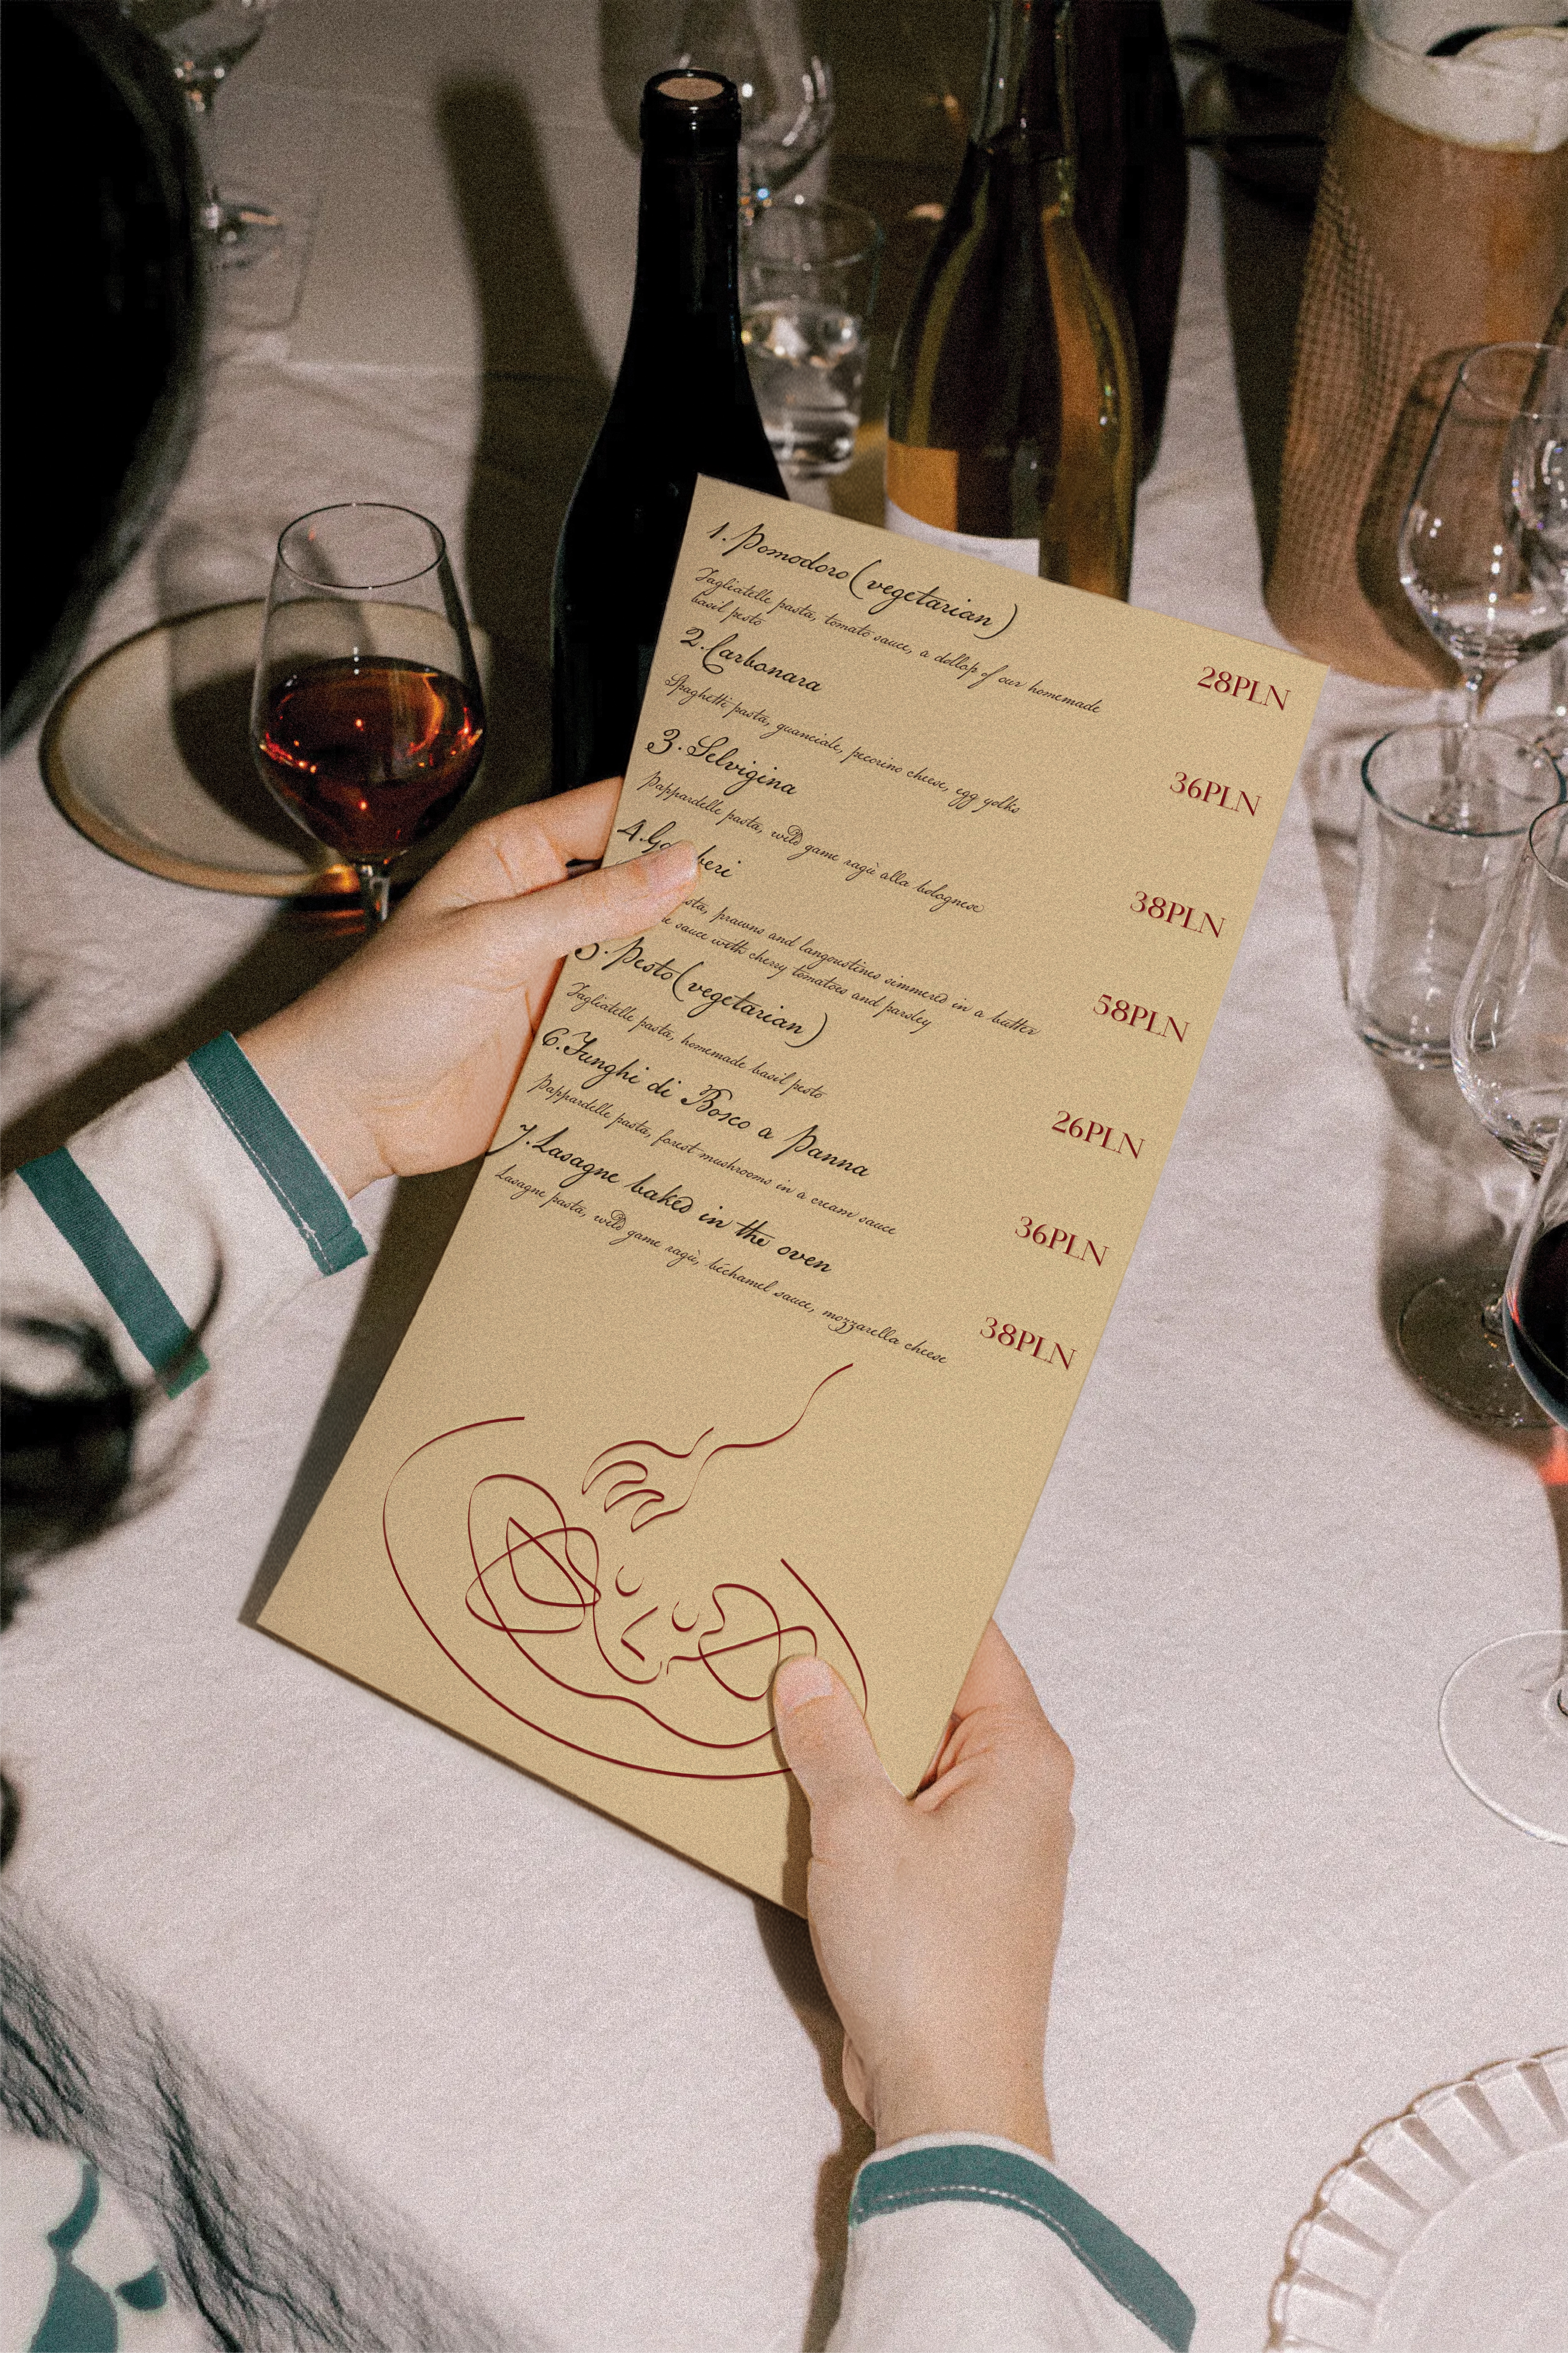 1. Pomodoro (vegetarian)
28PLN
Tagliatelle pasta, tomato sauce, a dollop of our homemade
basil pesto
2. Carbonara
36PLN
Spaghetti pasta, guanciale, pecorino cheese, egg yolks
3. Selvigina
38PLN
Pappardelle pasta, wild game ragù alla bolognese
4.
58PLN
prawns and langoustines simmered in a butter
sauce with cherry tomatoes and parsley
5. Pesto (vegetarian)
26PLN
Tagliatelle pasta, homemade basil pesto
6. Funghi di Bosco a Panna
36PLN
Pappardelle pasta, forest mushrooms in a cream sauce
7. Lasagne baked in the oven
38PLN
Lasagne pasta, wild game ragù, béchamel sauce, mozzarella cheese